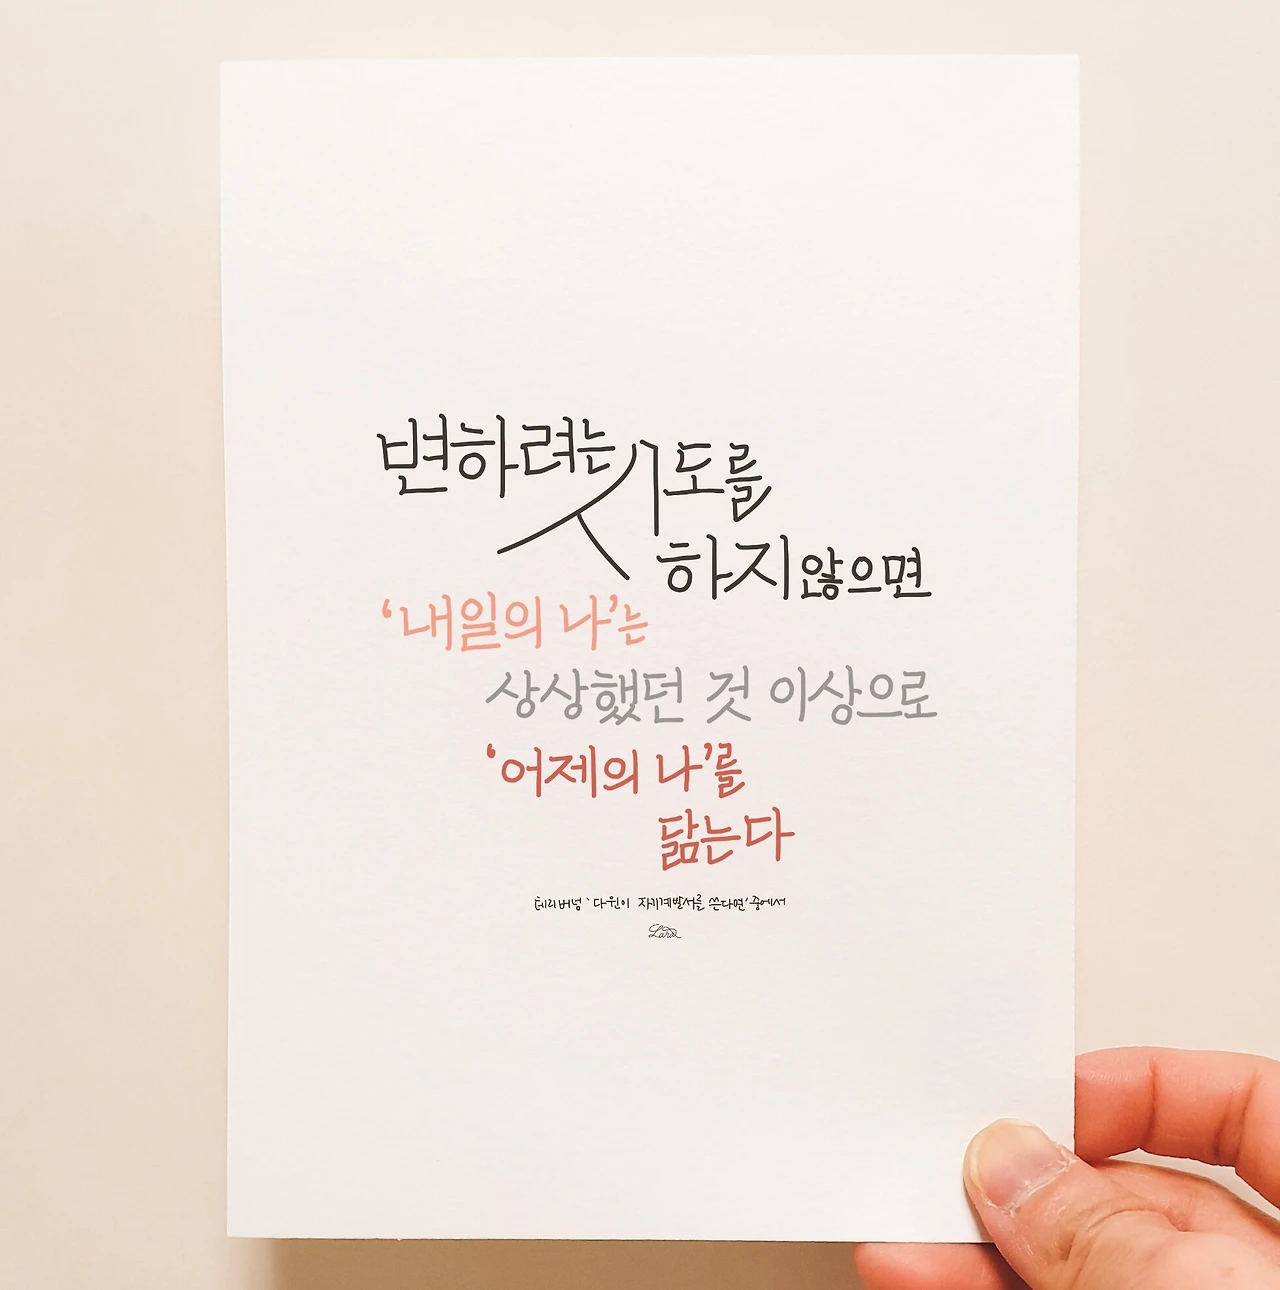 변하려는 시도를
하지 않으면
‘내일의 나’는
상상했던 것 이상으로
‘어제의 나’를
닮는다
테리버넘 ‘다윈이 자기계발서를 쓴다면’ 중에서
Lara